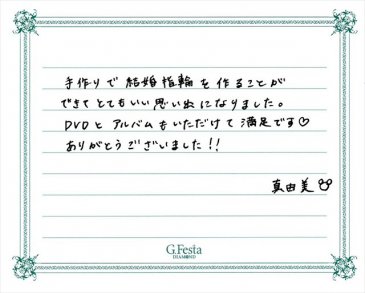 手作りで結婚指輪を作ることが
できてとてもいい思い出になりました。
DVDとアルバムもいただけて満足です♡
ありがとうございました!!
真由美
G.Festa
DIAMOND